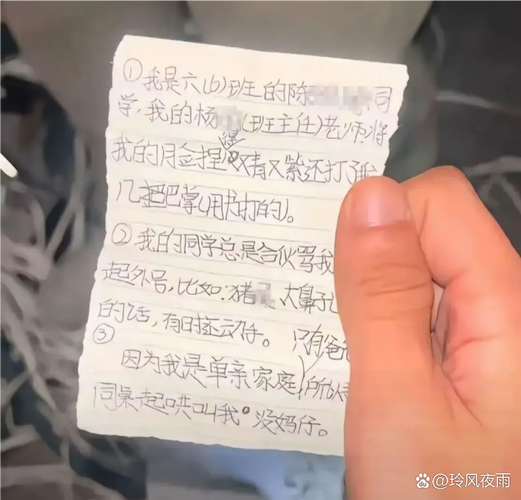 ①我是六(6)班的陈 同
学,我的杨 (班主任)老师将
我的脸捏 又青又紫还打了我
几把巴掌(用书打的)。
②我的同学总是合伙骂我
起外号,比如:猪 大鼻子
的话,有时还动手。
只有爸
③
因为我是单亲家庭,所以
同桌起哄叫我"没妈仔。
@玲风夜雨